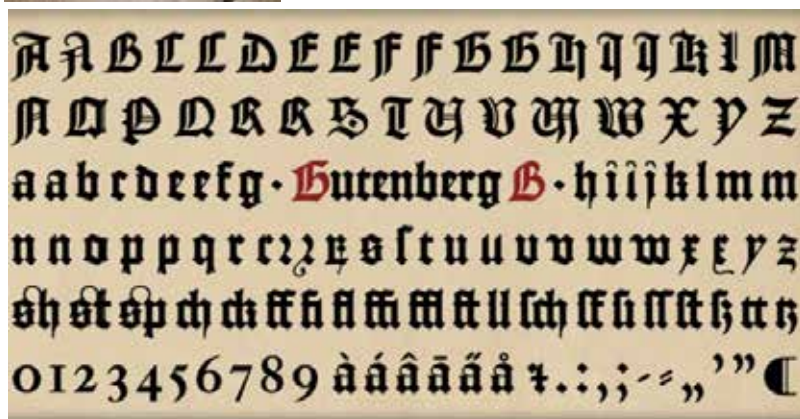 A A B C C D E E F F G G H I J K L M
N O P Q R R S T U V W W X Y Z
a a b c d e e f g · Gutenberg B · h î i ĵ k l m m
n n o p p q r r ꝛ s ſ t u u v v w w x x y z
sh st sp ch ck ff fi fl ffi ffl ft ll ſch ſſ ſi ſſ ſt ß tt tz
0 1 2 3 4 5 6 7 8 9 à á â ā a̋ å . : , ; - „ ’ ” ¶